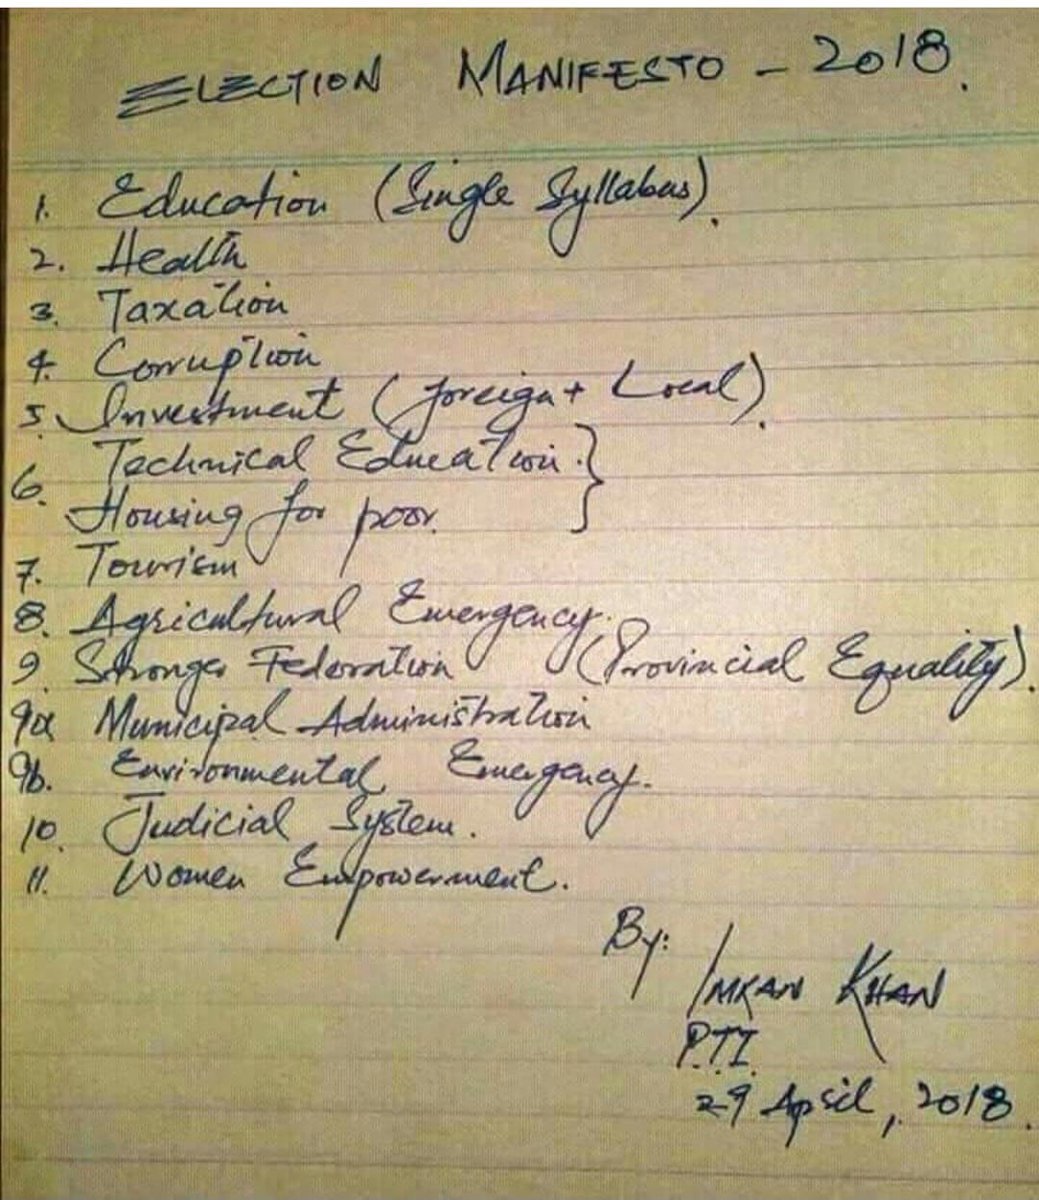 ELECTION MANIFESTO - 2018.
1. Education (Single Syllabus).
2. Health
3. Taxation
4. Corruption
5. Investment (foreign + Local).
6. Technical Education. }
Housing for poor.
7. Tourism
8. Agricultural Emergency.
9. Stronger Federation (Provincial Equality).
9a Municipal Administration
9b. Environmental Emergency.
10. Judicial System.
11. Women Empowerment.
By: IMRAN KHAN
P.T.I.
29 April, 2018.